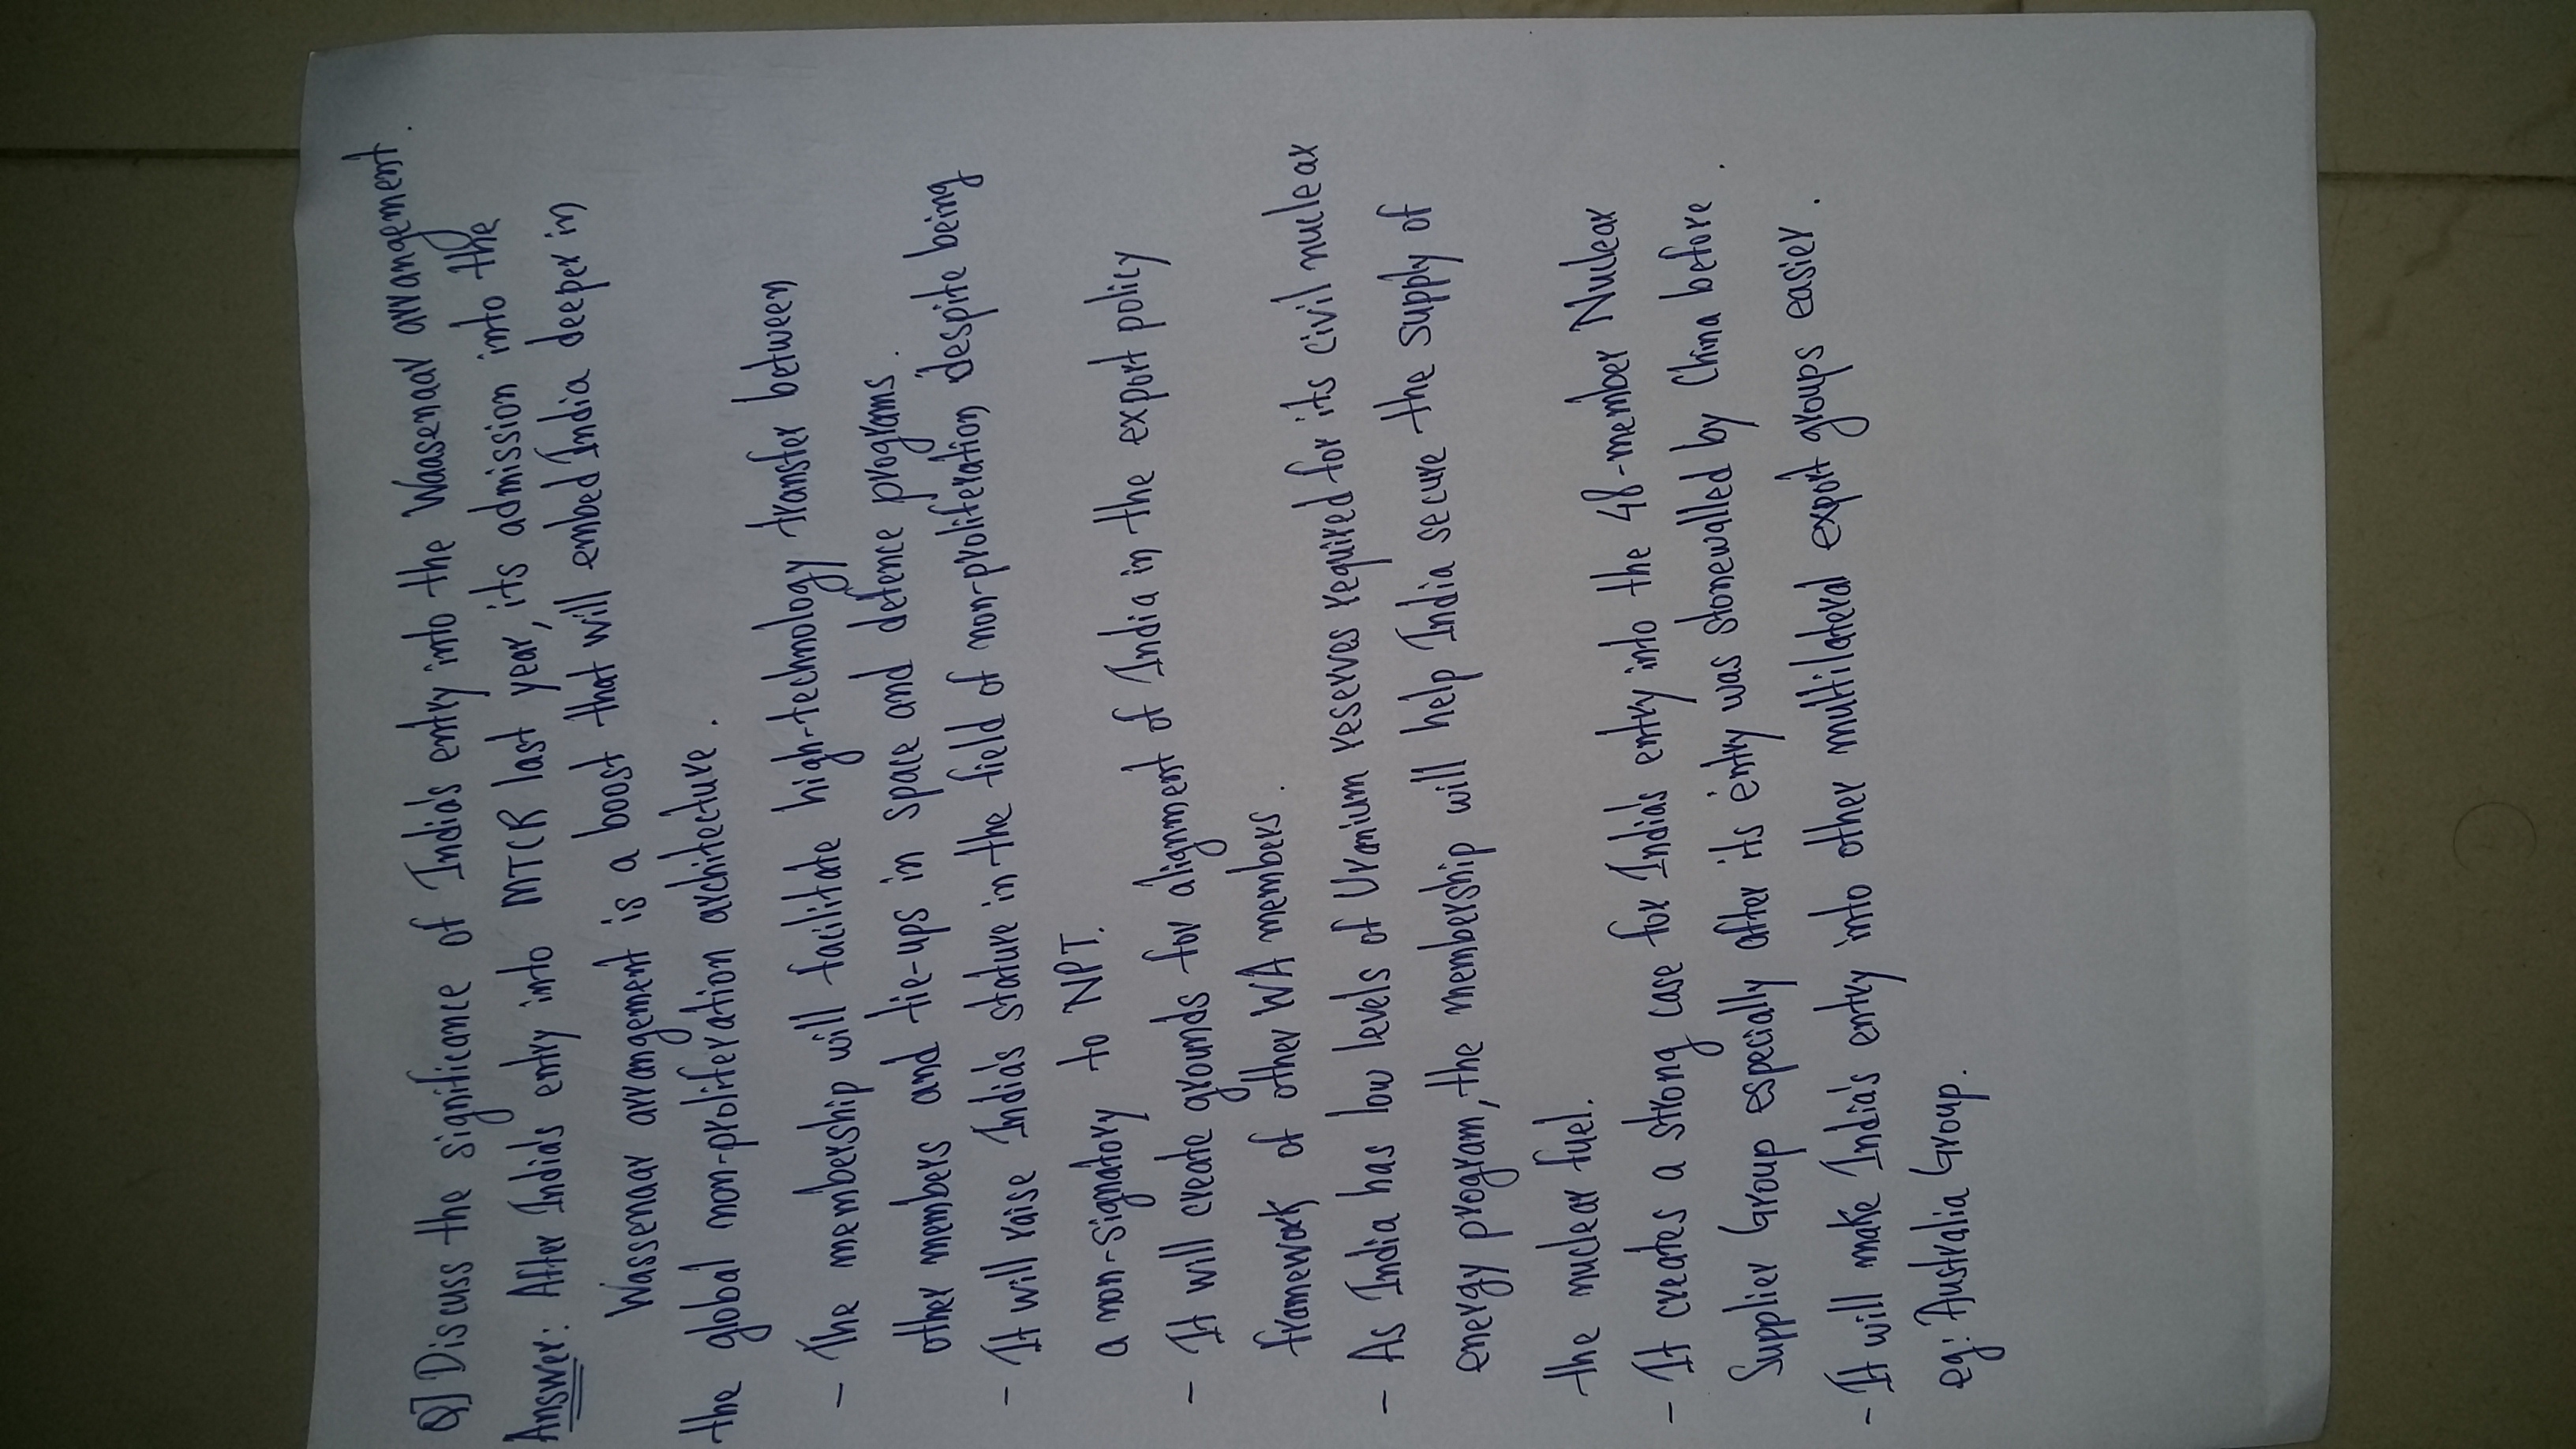 Q] Discuss the significance of India's entry into the Waasenaar arrangement.
Answer: After India's entry into MTCR last year, its admission into the
Wassenaar arrangement is a boost that will embed India deeper in
the global non-proliferation architecture.
- The membership will facilitate high-technology transfer between
other members and tie-ups in space and defence programs.
- It will raise India's stature in the field of non-proliferation, despite being
a non-signatory to NPT.
- It will create grounds for alignment of India in the export policy
framework of other WA members.
- As India has low levels of Uranium reserves required for its civil nuclear
energy program, the membership will help India secure the supply of
the nuclear fuel.
- It creates a strong case for India's entry into the 48-member Nulear
Supplier Group especially after its entry was stonewalled by China before.
- It will make India's entry into other multilateral export groups easier.
eg: Australia Group.